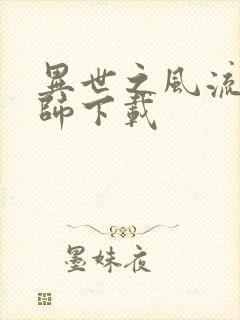 異世之風流
師下載
墨妹夜